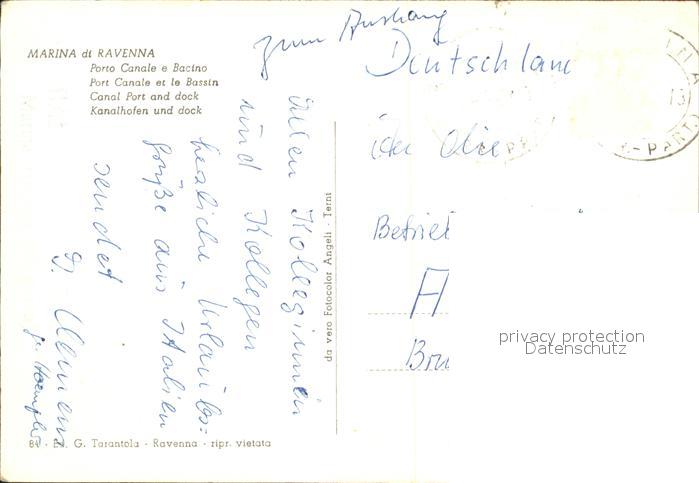 MARINA di RAVENNA
Porto Canale e Bacino
Port Canale et le Bassin
Canal Port and dock
Kanalhofen und dock
zum Aushang
Allen Kolleginnen
und Kollegen
herzliche Urlaubs=
grüße aus Italien
sendet
Deutschland
die
A
da vero Fotocolor Angeli - Terni
privacy protection
Datenschutz
84 - Ed. G. Tarantola - Ravenna - ripr. vietata